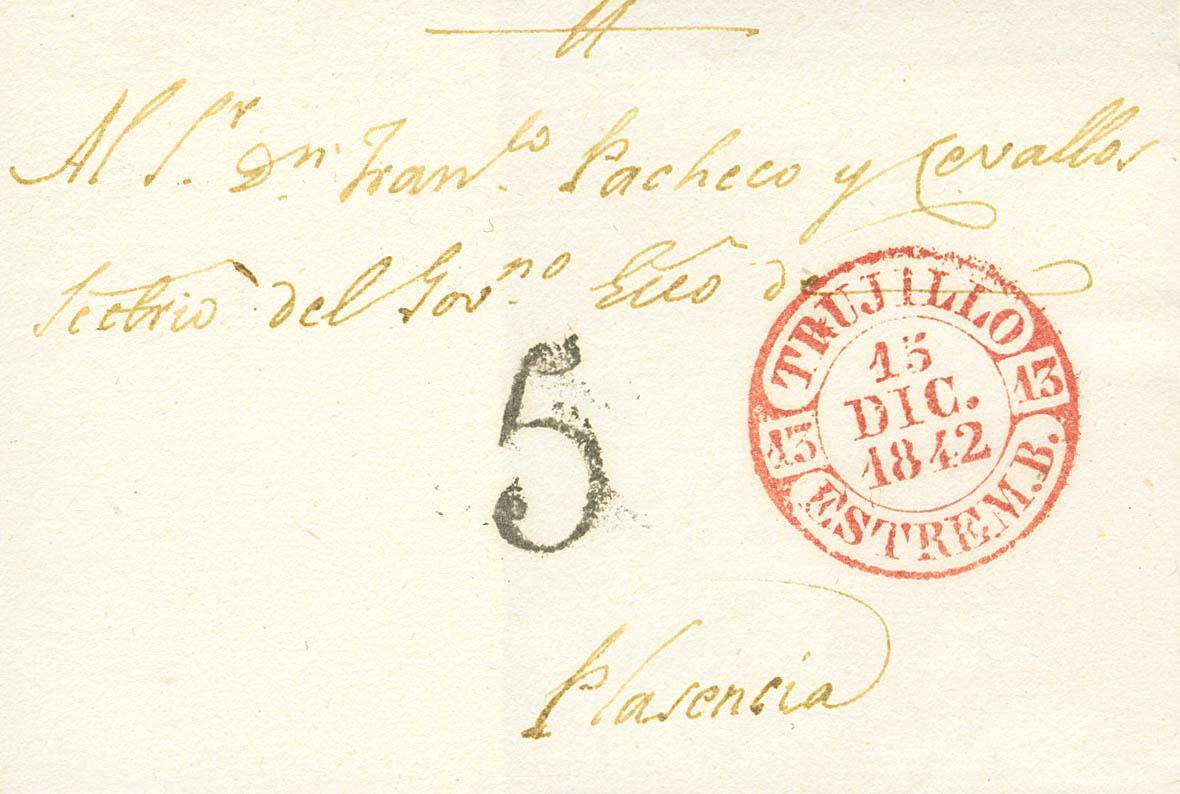 Al Sr. Dn. Franlo. Pacheco y Cevallos
Sectrio del Govno. Ecco de
5
TRUJILLO
13 13
15
DIC.
1842
ESTREM.B.
Plasencia